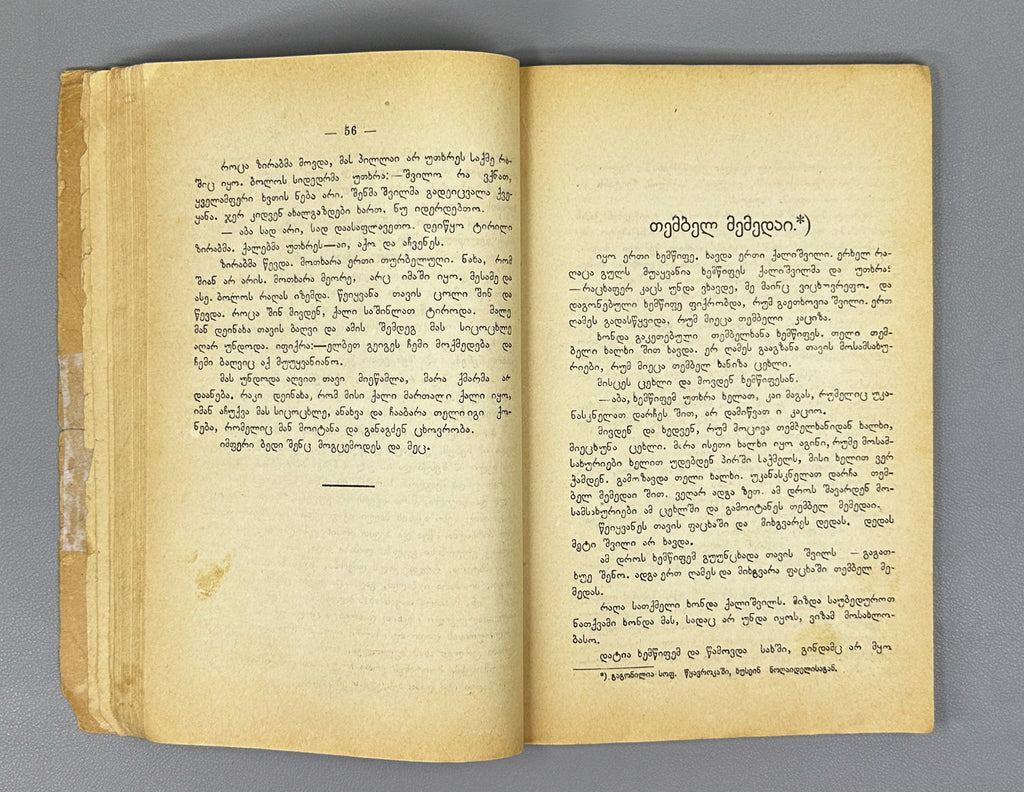 — 56 —
როცა ზირაბმა მოვდა, მას პილლაი არ უთხრეს საქმე რა-
შიც იყო. ბოლოს სიდედრმა უთხრა:—შვილო რა ვქნათ,
ყველამფერი ხვთის ნება არი. შენმა შვილმა გადეიცვალა ქვე-
ყანა. ჯერ კიდვენ ახალგაზდები ხართ. ნუ იდერდებთო.
— აბა სად არი, სად დაასაფლავეთო. დეიწყო ტირილი
ზირაბმა. ქალებმა უთხრეს—აი, აქო და აჩვენეს.
ზირაბმა წევდა. მოთხარა ერთი თურბელუღი. ნახა, რომ
შიან არ არის. მოთხარა მეორე, არც იმაში იყო. მესამე და
ასე. ბოლოს რაღას იზემდა. წეიყვანა თავის ცოლი შინ და
წევდა. როცა შინ მივდენ, ქალი საშინლათ ტიროდა. მალე
მან დეინახა თავის ბაღვი და ამის შემდეგ მას სიცოცხლე
აღარ უნდოდა. იფიქრა:—ელბეთ გეიგეს ჩემი მოქმედება და
ჩემი ბაღვიც აქ მუუყვანიანო.
მას უნდოდა აღვით თავი მიეწამლა, მარა ქმარმა არ
დაანება. რაკი დეინახა, რომ მისი ქალი მართალი ქალი იყო,
იმან აჩუქვა მას სიცოცხლე, ანახვა და ჩააბარა თელი იგი ქო-
ნება, რომელიც მან მოიტანა და განაგძენ ცხოვრობა.
იმფერი ბედი შენც მოგცემოდეს და მეც.
თემბელ მემედაი.*)
იყო ერთი ხემწიფე. ხავდა ერთი ქალიშვილი. ერხელ რა-
ღაცა გულს მუაყვანია ხემწიფეს ქალიშვილმა და უთხრა:
—რაცხაფერ კაცს უნდა ვხავდე, მე მაინც ვიცხოვრეფო. და
დაგონებული ხემწიფე ფიქრობდა, რუმ გაეთხოვია შვილი. ერთ
ღამეს გადასწყვიდა, რუმ მიეცა თემბელი კაციზა.
ხონდა გაკეთებული თემბელხანა ხემწიფეს. თელი თემ-
ბელი ხალხი შით ხავდა. ერ ღამეს გააგზანა თავის მოსამსახუ-
რიები, რუმ მიეცა თემბელ ხანიზა ცეხლი.
მისცეს ცეხლი და მოვდენ ხემწიფესან.
—აბა, ხემწიფემ უთხრა ხელათ, კაი მაგას, რუმელიც უკა-
ნასკნელათ დარჩეს შით, არ დამიწვათ ი კაციო.
მივდენ და ხედვენ, რუმ მოცივა თემბელხანიდან ხალხი,
მიეცხუნა ცეხლი. მარა ისეთი ხალხი იყო აგინი, რუმე მოსამ-
სახურიები ხელით უდებდენ პირში საქმელს, მისი ხელით ვერ
ჭამდენ. გამოზავდა თელი ხალხი. უკანასკნელათ დარჩა თემ-
ბელ მემედაი შით. ვეღარ ადგა ზეთ. ამ დროს შავარდენ მო-
სამსახურიები ამ ცეხლში და გამოიტანეს თემბელ მემედაი.
წეიყვანეს თავის ფაცხაში და მიხგვარეს დედას. დედას
მეტი შვილი არ ხავდა.
ამ დროს ხემწიფემ გუუნცხადა თავის შვილს —გაგათ-
ხუე შენო. ადგა ერთ ღამეს და მიხგვარა ფაცხაში თემბელ მე-
მედას.
რაღა სათქმელი ხონდა ქალიშვილს. მიზდა საუბედუროთ
ნათქვამი ხონდა მას, სადაც არ უნდა იყოს, ვიზამ მოსახლო-
ბასო.
დატია ხემწიფემ და წამოვდა სახში, გინდამც არ მყო
*) გაგონილია სოფ. წყავროკაში, ხუსეინ ნოღაიდელისაგან.